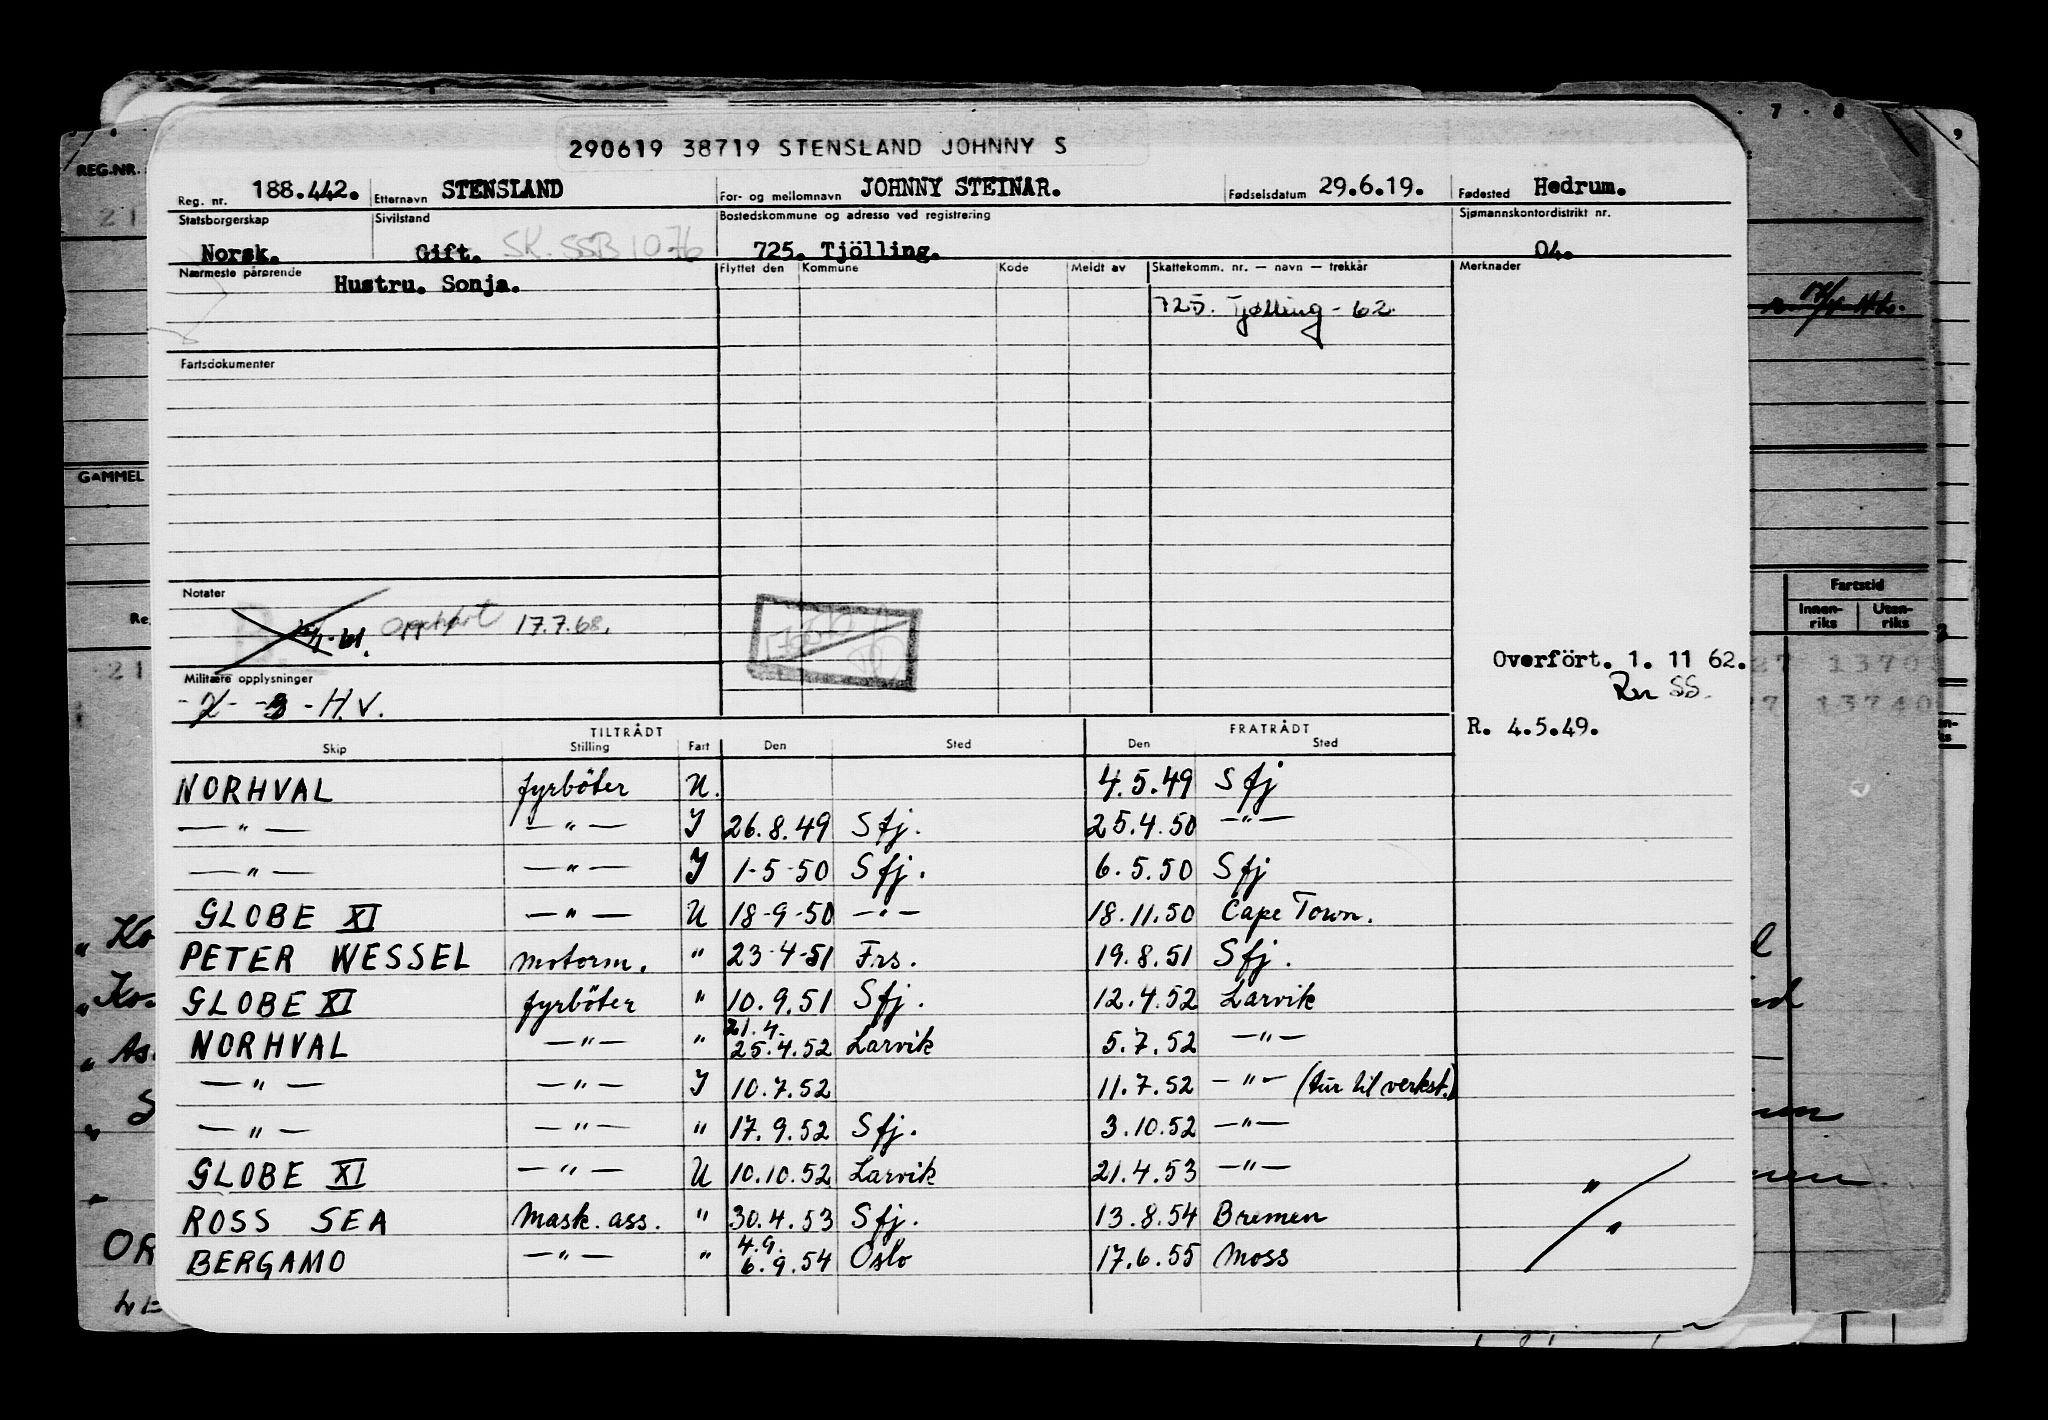 290619 38719 STENSLAND JOHNNY S
Reg. nr. 188.442. Etternavn STENSLAND For- og mellomnavn JOHNNY STEINAR. Fødselsdatum 29.6.19. Fødested Hedrum.
Statsborgerskap Sivilstand Bostedskommune og adresse ved registrering Sjømannskontordistrikt nr.
Norsk. Gift. SK. SSB 1076 725. Tjölling. 04.
Nærmeste pårørende Hustru. Sonja. Flyttet den Kommune Kode Meldt av Skattekomm. nr. — navn — trekkår Merknader
725. Tjølling - 62.
Fartsdokumenter
Notater
Opphørt 17.7.68.
Overfört. 1. 11 62.
Militære opplysninger
- H.V.
R. 4.5.49.
TILTRÅDT FRATRÅDT
Skip Stilling Fart Den Sted Den Sted
NORHVAL fyrböter U. 4.5.49 Sfj
— " — — " — I 26.8.49 Sfj. 25.4.50 —"—
— " — — " — I 1-5-50 Sfj. 6.5.50 Sfj
GLOBE XI — " — U 18-9-50 —"— 18.11.50 Cape Town.
PETER WESSEL motorm. " 23-4-51 Frs. 19.8.51 Sfj.
GLOBE XI fyrböter " 10.9.51 Sfj. 12.4.52 Larvik
21.4.
NORHVAL —"— " 25.4.52 Larvik 5.7.52 —"—
— " — —"— I 10.7.52 11.7.52 —"— (tur til verkst.)
— " — —"— " 17.9.52 Sfj. 3.10.52 —"—
GLOBE XI — " — U 10.10.52 Larvik 21.4.53 —"— "
ROSS SEA Mask. ass. " 30.4.53 Sfj. 13.8.54 Bremen "
4.9.
BERGAMO —"— " 6.9.54 Oslo 17.6.55 Moss
REG.NR.
GAMMEL
Fartstid
Innen-riks Uten-riks